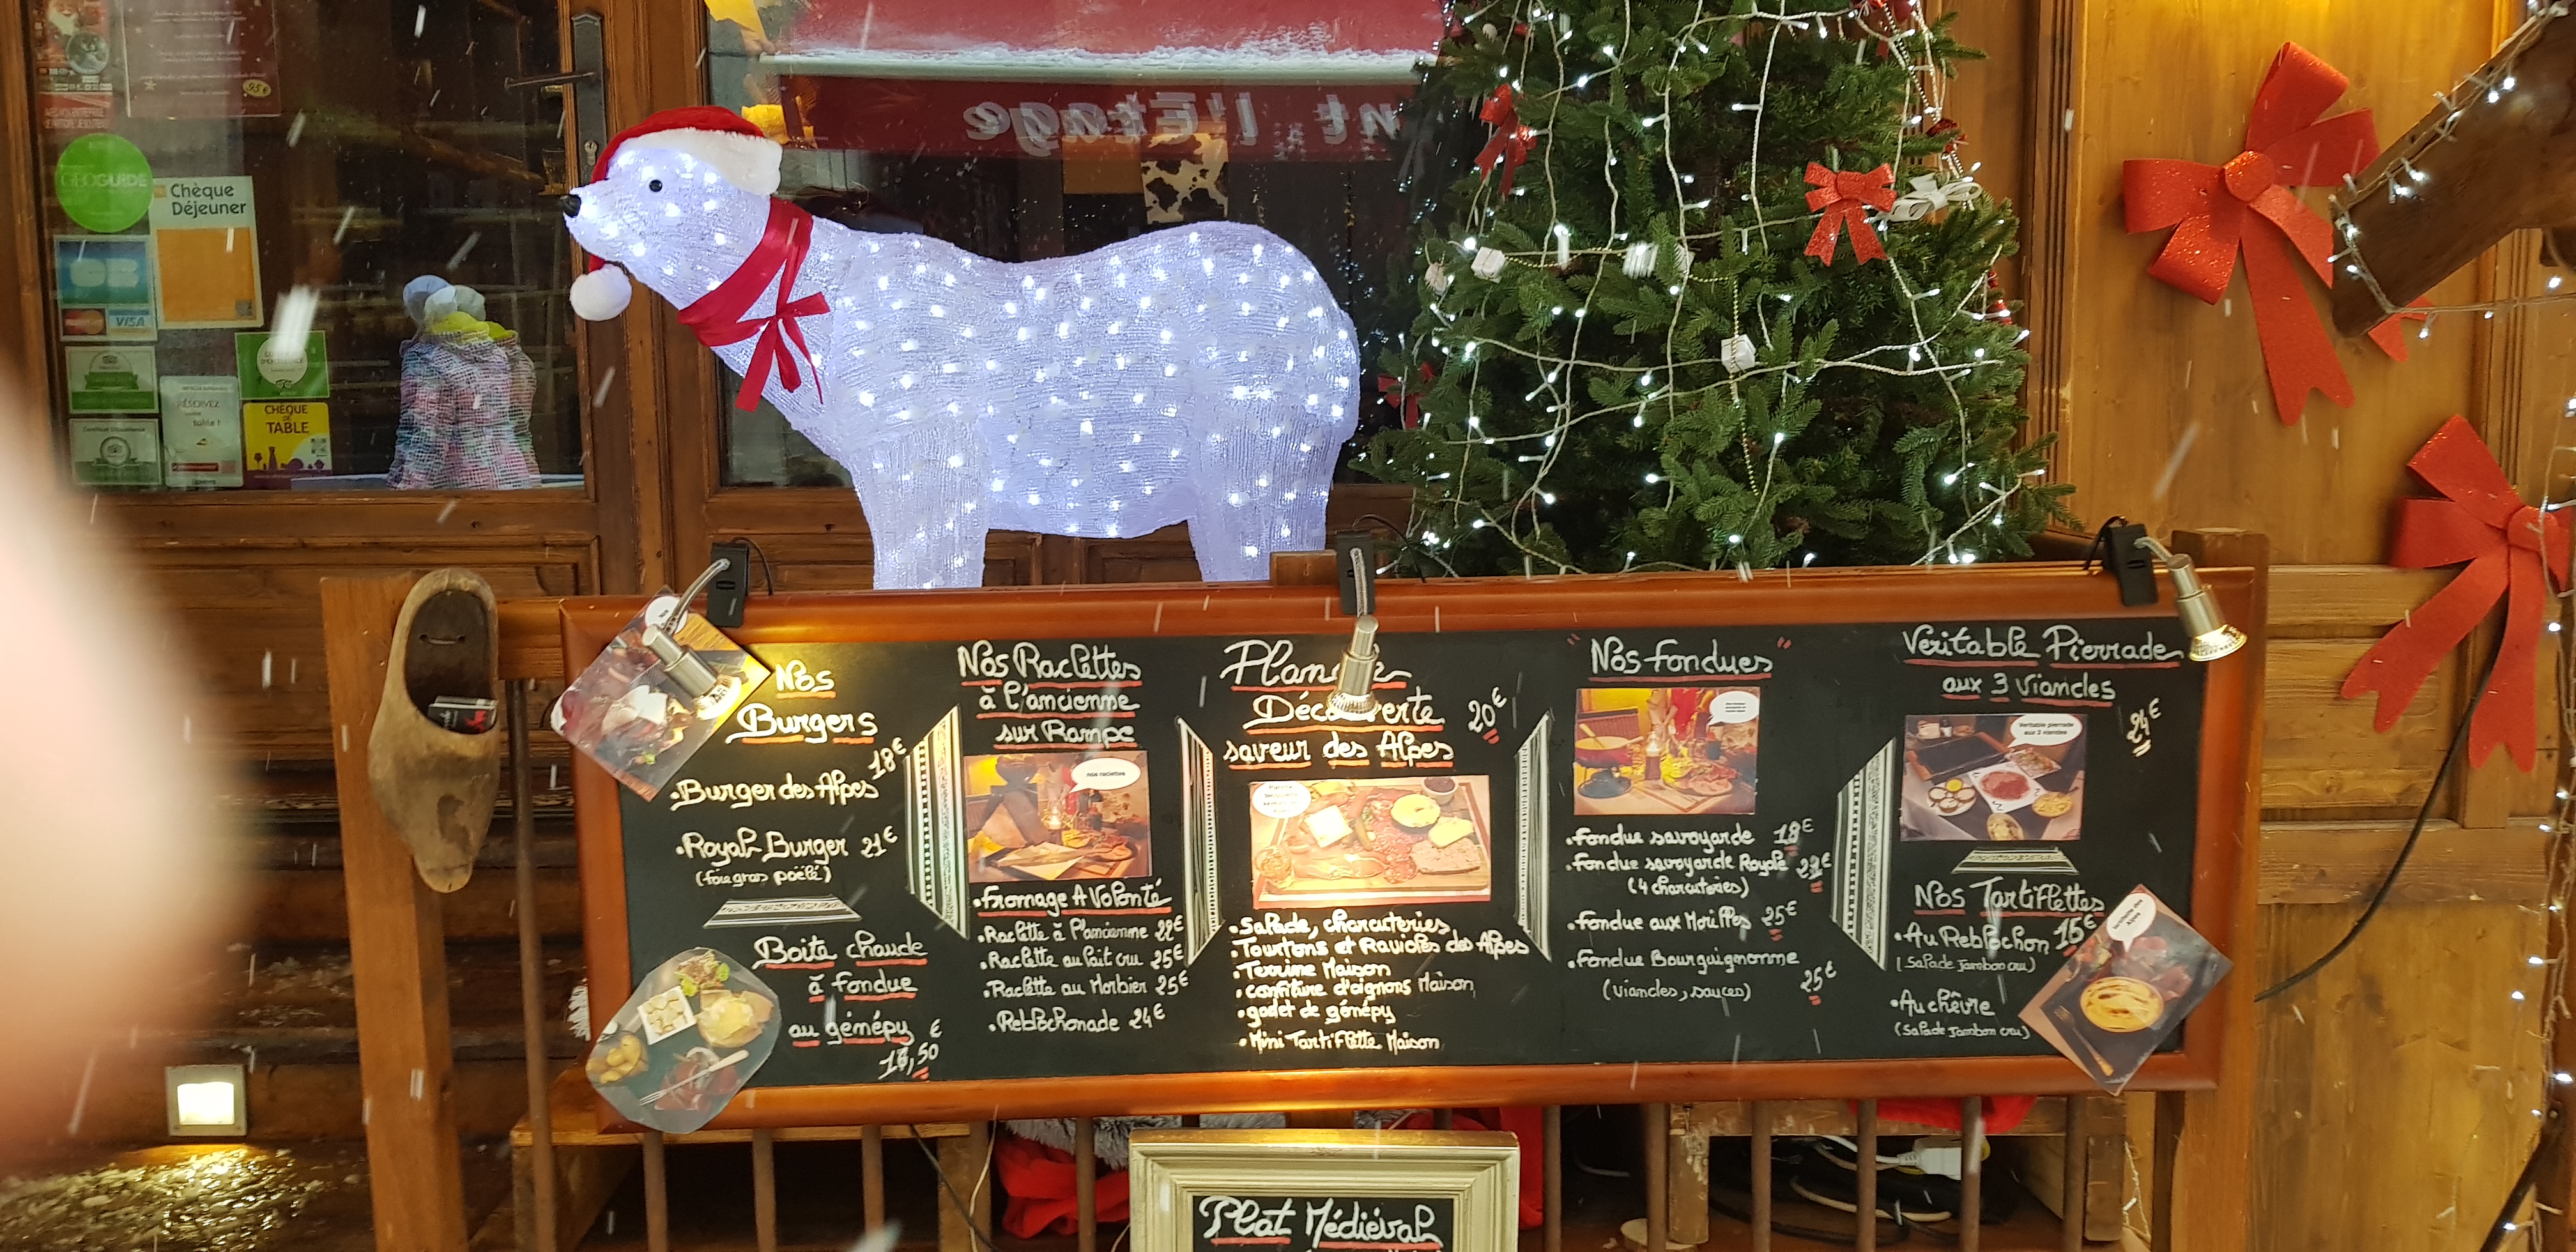 95€
GEOGUIDE
Chèque
Déjeuner
VISA
RÉSERVEZ
table !
CHÈQUE
DE
TABLE
nt l'Etage
Nos
Burgers
.Burger des Alpes 18€
.Royal Burger 21€
(foie gras poëlé)
Boite chaude
à fondue
au génépy
€
Nos Raclettes
à l'ancienne
sur Rampe
nos raclettes
.Fromage A Volonté
.Raclette à l'ancienne 22€
.Raclette au lait cru 25€
.Raclette au Morbier 25€
.Reblochonade 24€
Planche
Découverte 20€
saveur des Alpes
.Salade, charcuteries
.Tourtons et Ravioles des Alpes
.Terrine Maison
.confiture d'oignons Maison
.godet de génépy
.Mini Tartiflette Maison
"Nos fondues"
.Fondue savoyarde 18€
.Fondue savoyarde Royale
(4 charcuteries)
.Fondue aux Morilles 25€
.Fondue Bourguignonne
(viandes, sauces) 25€
Veritable Pierrade
aux 3 Viandes
24€
Veritable pierrade
aux 3 viandes
Nos Tartiflettes
.Au Reblochon
(Salade Jambon cru)
.Au chèvre
(Salade Jambon cru)
Plat Médiéval